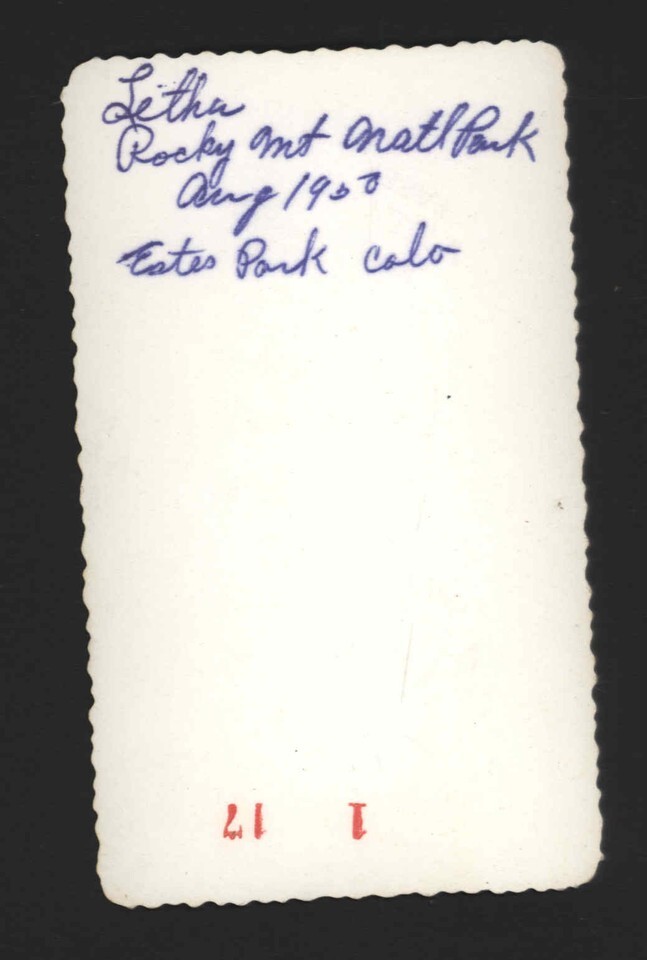 Letha
Rocky Mt Natl Park
Aug 1950
Estes Park Colo
1 17